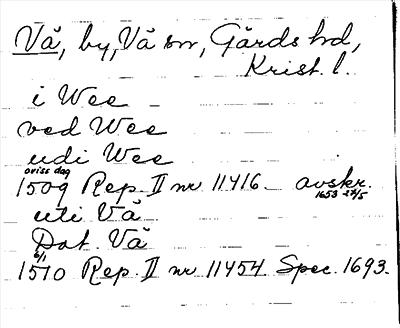 Vå, by, Vå sn, Gärds hd,
Krist. l.
i Wee
ved Wee
udi Wee
oviss dag
1509 Rep. II nr 11416 avskr.
1653 27/5
uti Vå
Dat. Vå
6/1
1510 Rep. II nr 11454 Spec. 1693.